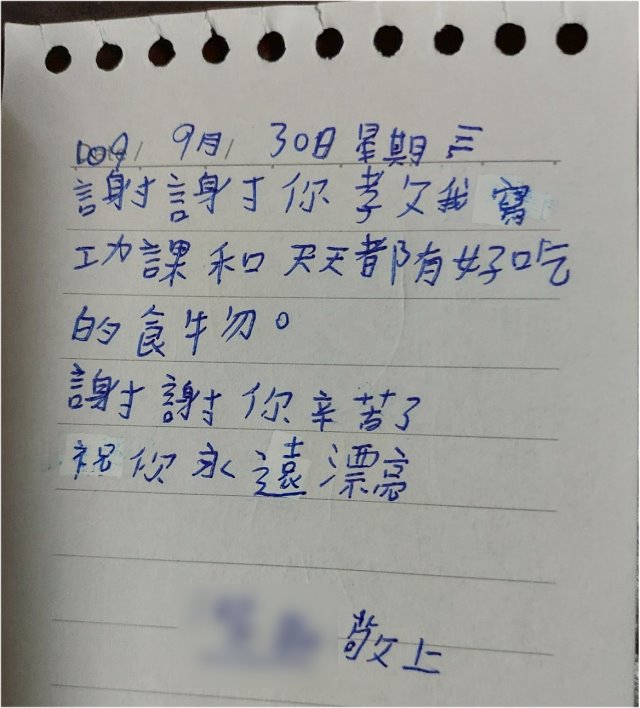 109/ 9月/ 30日 星期三
謝謝你孝文我寫
功課和天天都有好吃
的食牛勿。
謝謝你辛苦了
祝你永遠漂亮
敬上